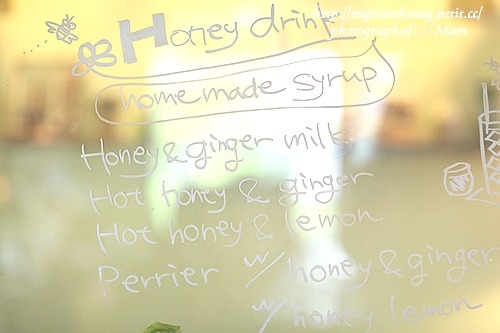 http://mysweethoney.petit.cc/
photographed (c) Mam
Honey drink
homemade syrup
Honey & ginger milk
Hot honey & ginger
Hot honey & lemon
Perrier w/ honey & ginger
w/ honey lemon